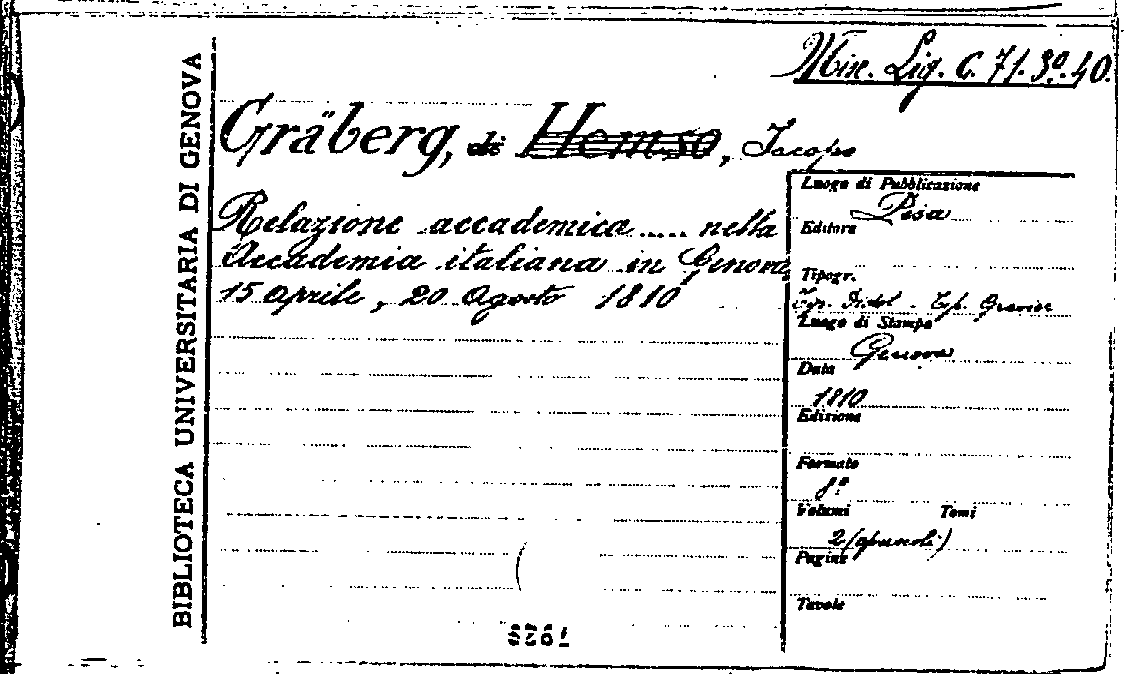 Misc. Lig. C. 71. 3º. 40.
BIBLIOTECA UNIVERSITARIA DI GENOVA
Gräberg, di Hemso, Jacopo
Relazione accademica ..... nella
Accademia italiana in Genova
15 Aprile, 20 Agosto 1810
Luogo di Pubblicazione
Pisa
Editore
Tipogr.
Tip. Didot - Tip. Gravier
Luogo di Stampa
Genova
Data
1810
Edizione
Formato
8º
Volumi Tomi
2 (opuscoli)
Pagine
Tavole